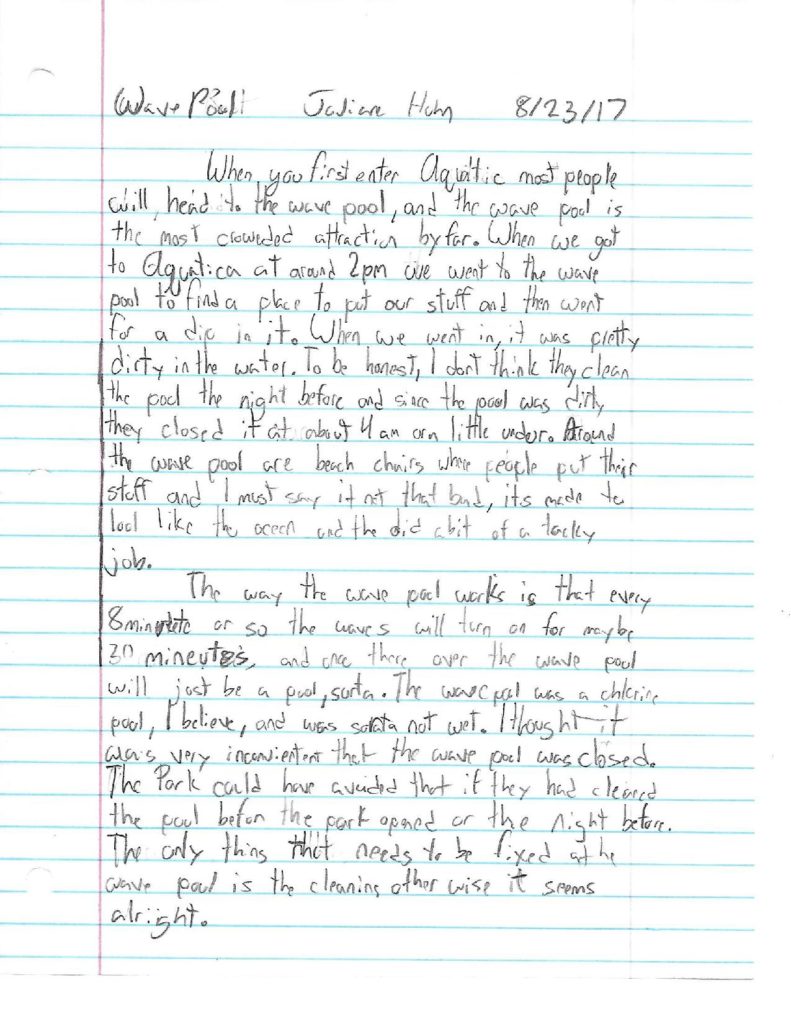 Wave Pool 8/23/17
When you first enter Aquatic most people
will, head to the wave pool, and the wave pool is
the most crowded attraction by far. When we got
to Aquatica at around 2pm we went to the wave
pool to find a place to put our stuff and then went
for a dip in it. When we went in, it was pretty
dirty in the water. To be honest, I don't think they clean
the pool the night before and since the pool was dirty
they closed it at about 4 am or a little under. Around
the wave pool are beach chairs where people put their
stuff and I must say it not that bad, its made to
look like the oceen and the did a bit of a tacky
job.
The way the wave pool works is that every
8 or so the waves will turn on for maybe
30 mineutes, and once there over the wave pool
will just be a pool, sorta. The wave pool was a chlorine
pool, I believe, and was not wet. I thought it
was very inconvientent that the wave pool was closed.
The Park could have avoided that if they had cleared
the pool before the park opened or the night before.
The only thing that needs to be fixed at the
wave pool is the cleaning other wise it seems
alright.